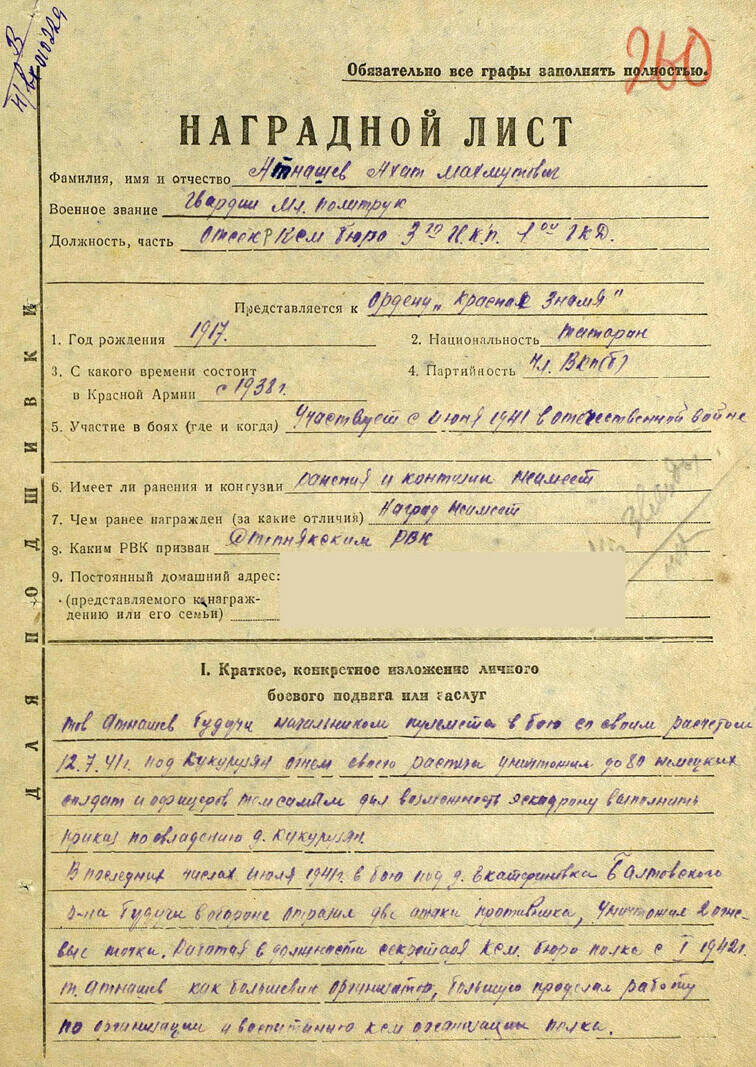 260
Обязательно все графы заполнять полностью.
НАГРАДНОЙ ЛИСТ
Фамилия, имя и отчество Атнашев Ахат Махмутович
Военное звание Гвардии Мл. политрук
Должность, часть Отсекр Ксм бюро 3го К.К.П. 1ой ГКД.
Представляется к Ордену „Красное Знамя"
1. Год рождения 1917.
2. Национальность татарин
3. С какого времени состоит
в Красной Армии с 1938г.
4. Партийность Чл. ВКП(б)
5. Участие в боях (где и когда) Участвует с июня 1941 в отечественной войне
6. Имеет ли ранения и контузии ранения и контузии не имеет
7. Чем ранее награжден (за какие отличия) Наград не имеет
8. Каким РВК призван Степнякским РВК
9. Постоянный домашний адрес:
(представляемого к награж-
дению или его семьи)
Звезды
ДЛЯ ПОДШИВКИ
I. Краткое, конкретное изложение личного
боевого подвига или заслуг
тов Атнашев будучи начальником пулемета в бою со своим расчетом
12.7.41г. под Кукурузян огнем своего расчета уничтожил до 80 немецких
солдат и офицеров тем самым дал возможность эскадрону выполнить
приказ по овладению д. Кукурузян.
В последних числах июля 1941г. в бою под д. Екатериновка Балтовского
р-на будучи в обороне отразил две атаки противника, уничтожил 2 огне-
вые точки. Работая в должности секретаря Ксм. бюро полка с I 1942г.
т. Атнашев как большевик организатор, большую проделал работу
по организации и воспитанию ксм организации полка.